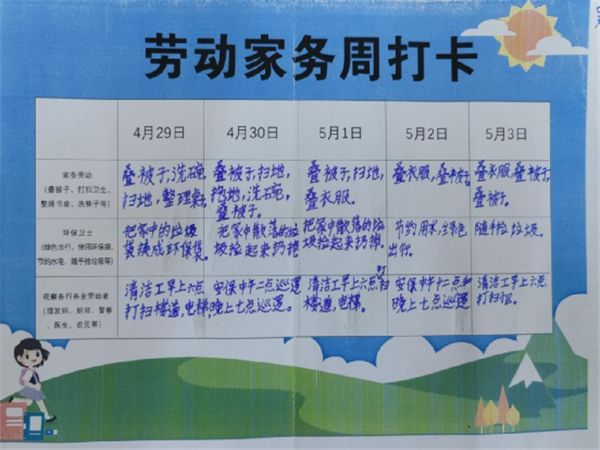 劳动家务周打卡
4月29日 4月30日 5月1日 5月2日 5月3日
家务劳动
(叠被子、打扫卫生、
整理书桌、洗筷子等)
叠被子,洗碗,
扫地,整理桌子
叠被子,扫地,
拖地,洗碗,
叠被子。
叠被子,扫地,
叠衣服。
叠衣服,叠被子。
叠衣服,叠被子,
叠被子。
环保卫士
(绿色出行、使用环保袋、
节约水电、随手捡垃圾等)
把家中的垃圾
袋换成环保袋。
把家中散落的垃
圾捡起来扔掉
把家中散落的垃
圾捡起来扔掉。
节约用水,绿色
出行。
随手捡垃圾。
观察各行各业劳动者
(理发师、厨师、警察
、医生、农民等)
清洁工早上六点
打扫楼道,电梯,
安保中午二点巡逻
晚上七点巡逻。
清洁工早上六点打扫
楼道,电梯。
安保中午二点和
晚上七点巡逻。
清洁工早上六点
打扫